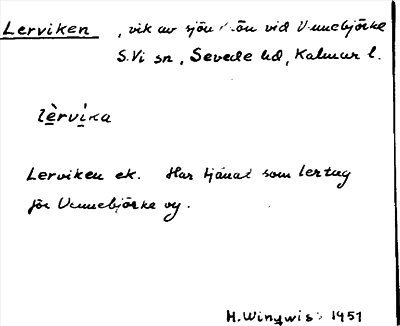 Lerviken, vik av sjön vid Vennebjörke
S. Vi sn, Sevede hd, Kalmar l.
lèrvìka
Lerviken ek. Har tjänat som lertag
för Vennebjörke by.
H. Wingwist 1951